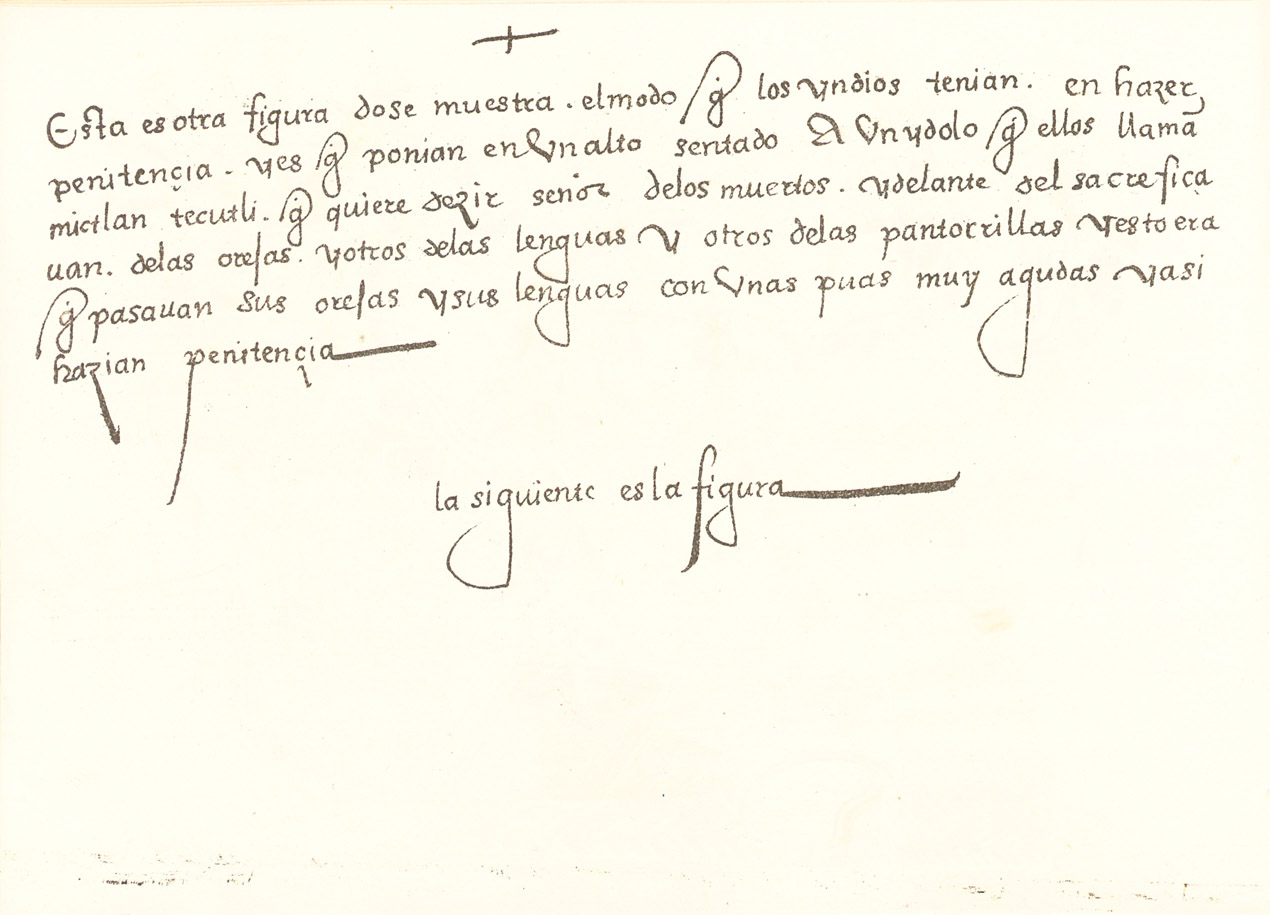 Esta es otra figura dose muestra . el modo q̃ los yndios tenian . en hazer
penitençia . yes q̃ ponian en Vn alto sentado A Vn ydolo q̃ ellos llamã
mictlan tecutli . q̃ quiere dezir señor delos muertos . ydelante del sacrefica
uan . delas orejas . yotros delas lenguas y otros delas pantorrillas yesto era
q̃ pasauan sus orejas ysus lenguas con Vnas puas muy agudas yasi
hazian penitençia
la siguiente es la figura